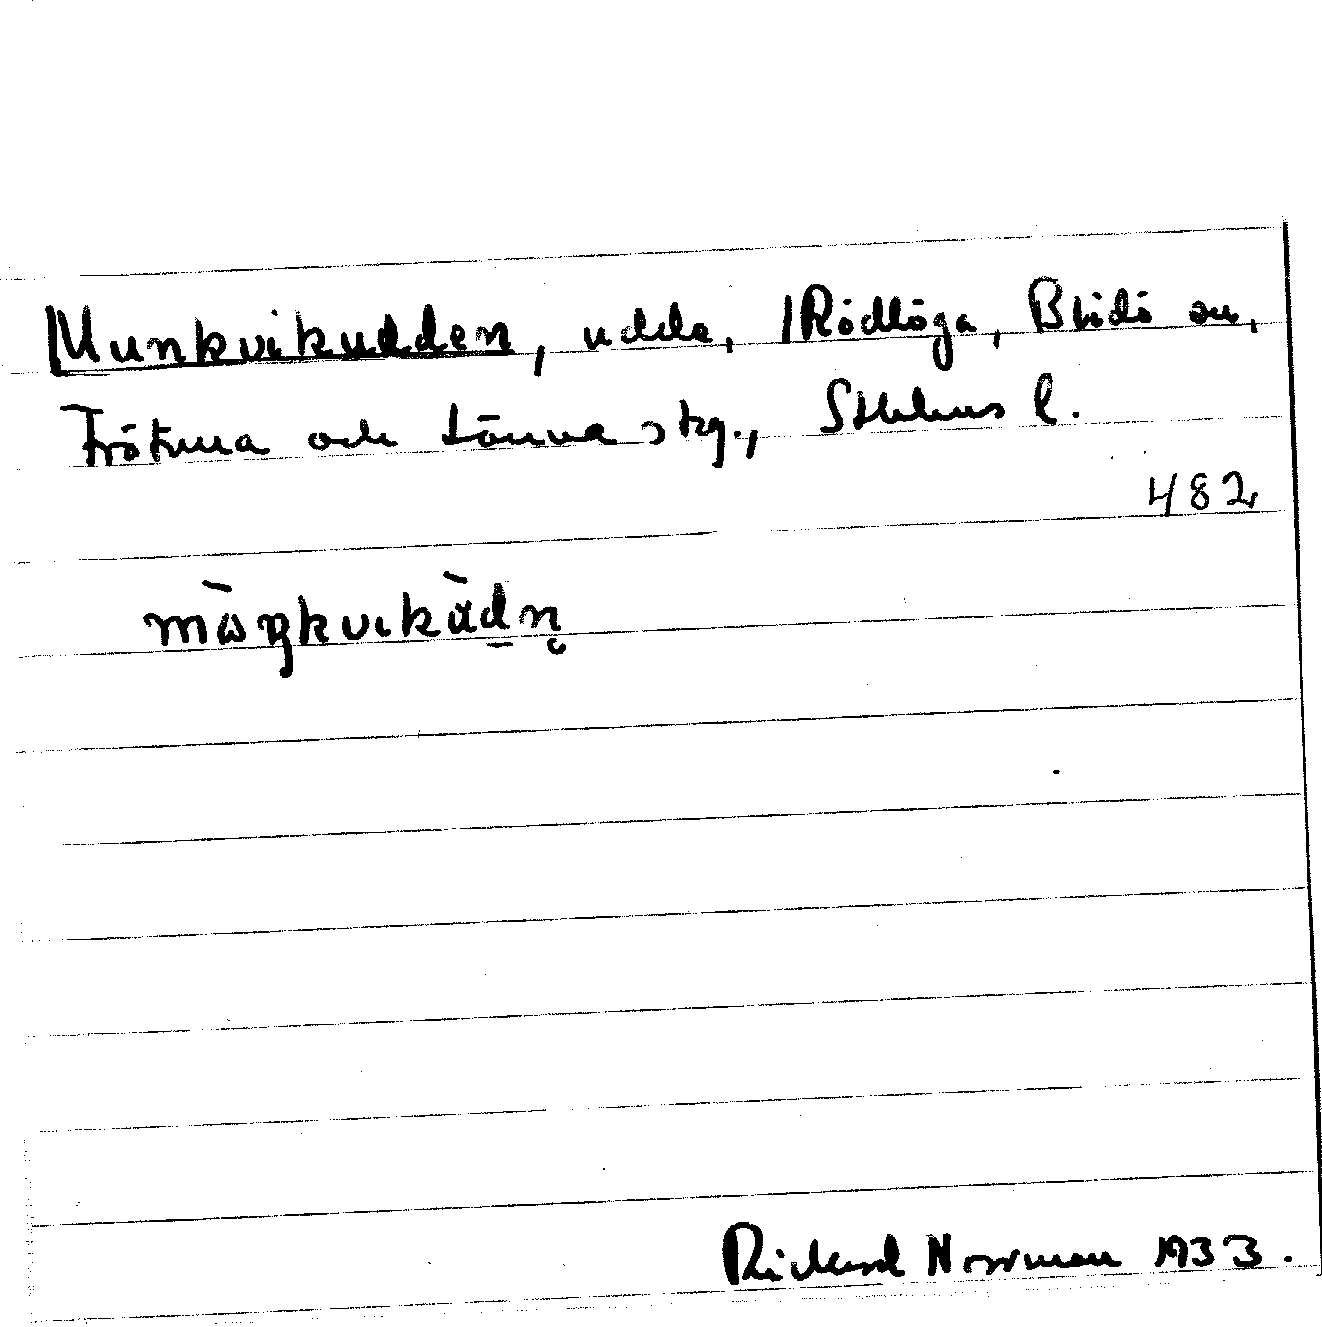 Munkvikudden, udda, Rödlöga, Blidö sn,
Frötuna och Länna skg., Sthlms l.
482
Rickard Norrman 1933.